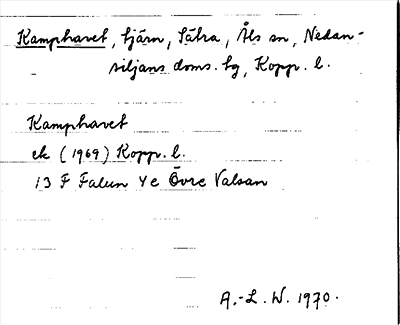 Kamphavet, tjärn, Sätra, Åls sn, Nedan-
siljans doms. tg, Kopp. l.
Kamphavet
ek (1969) Kopp. l.
13 F Falun 4 e Övre Valsan
A.-L. W. 1970.